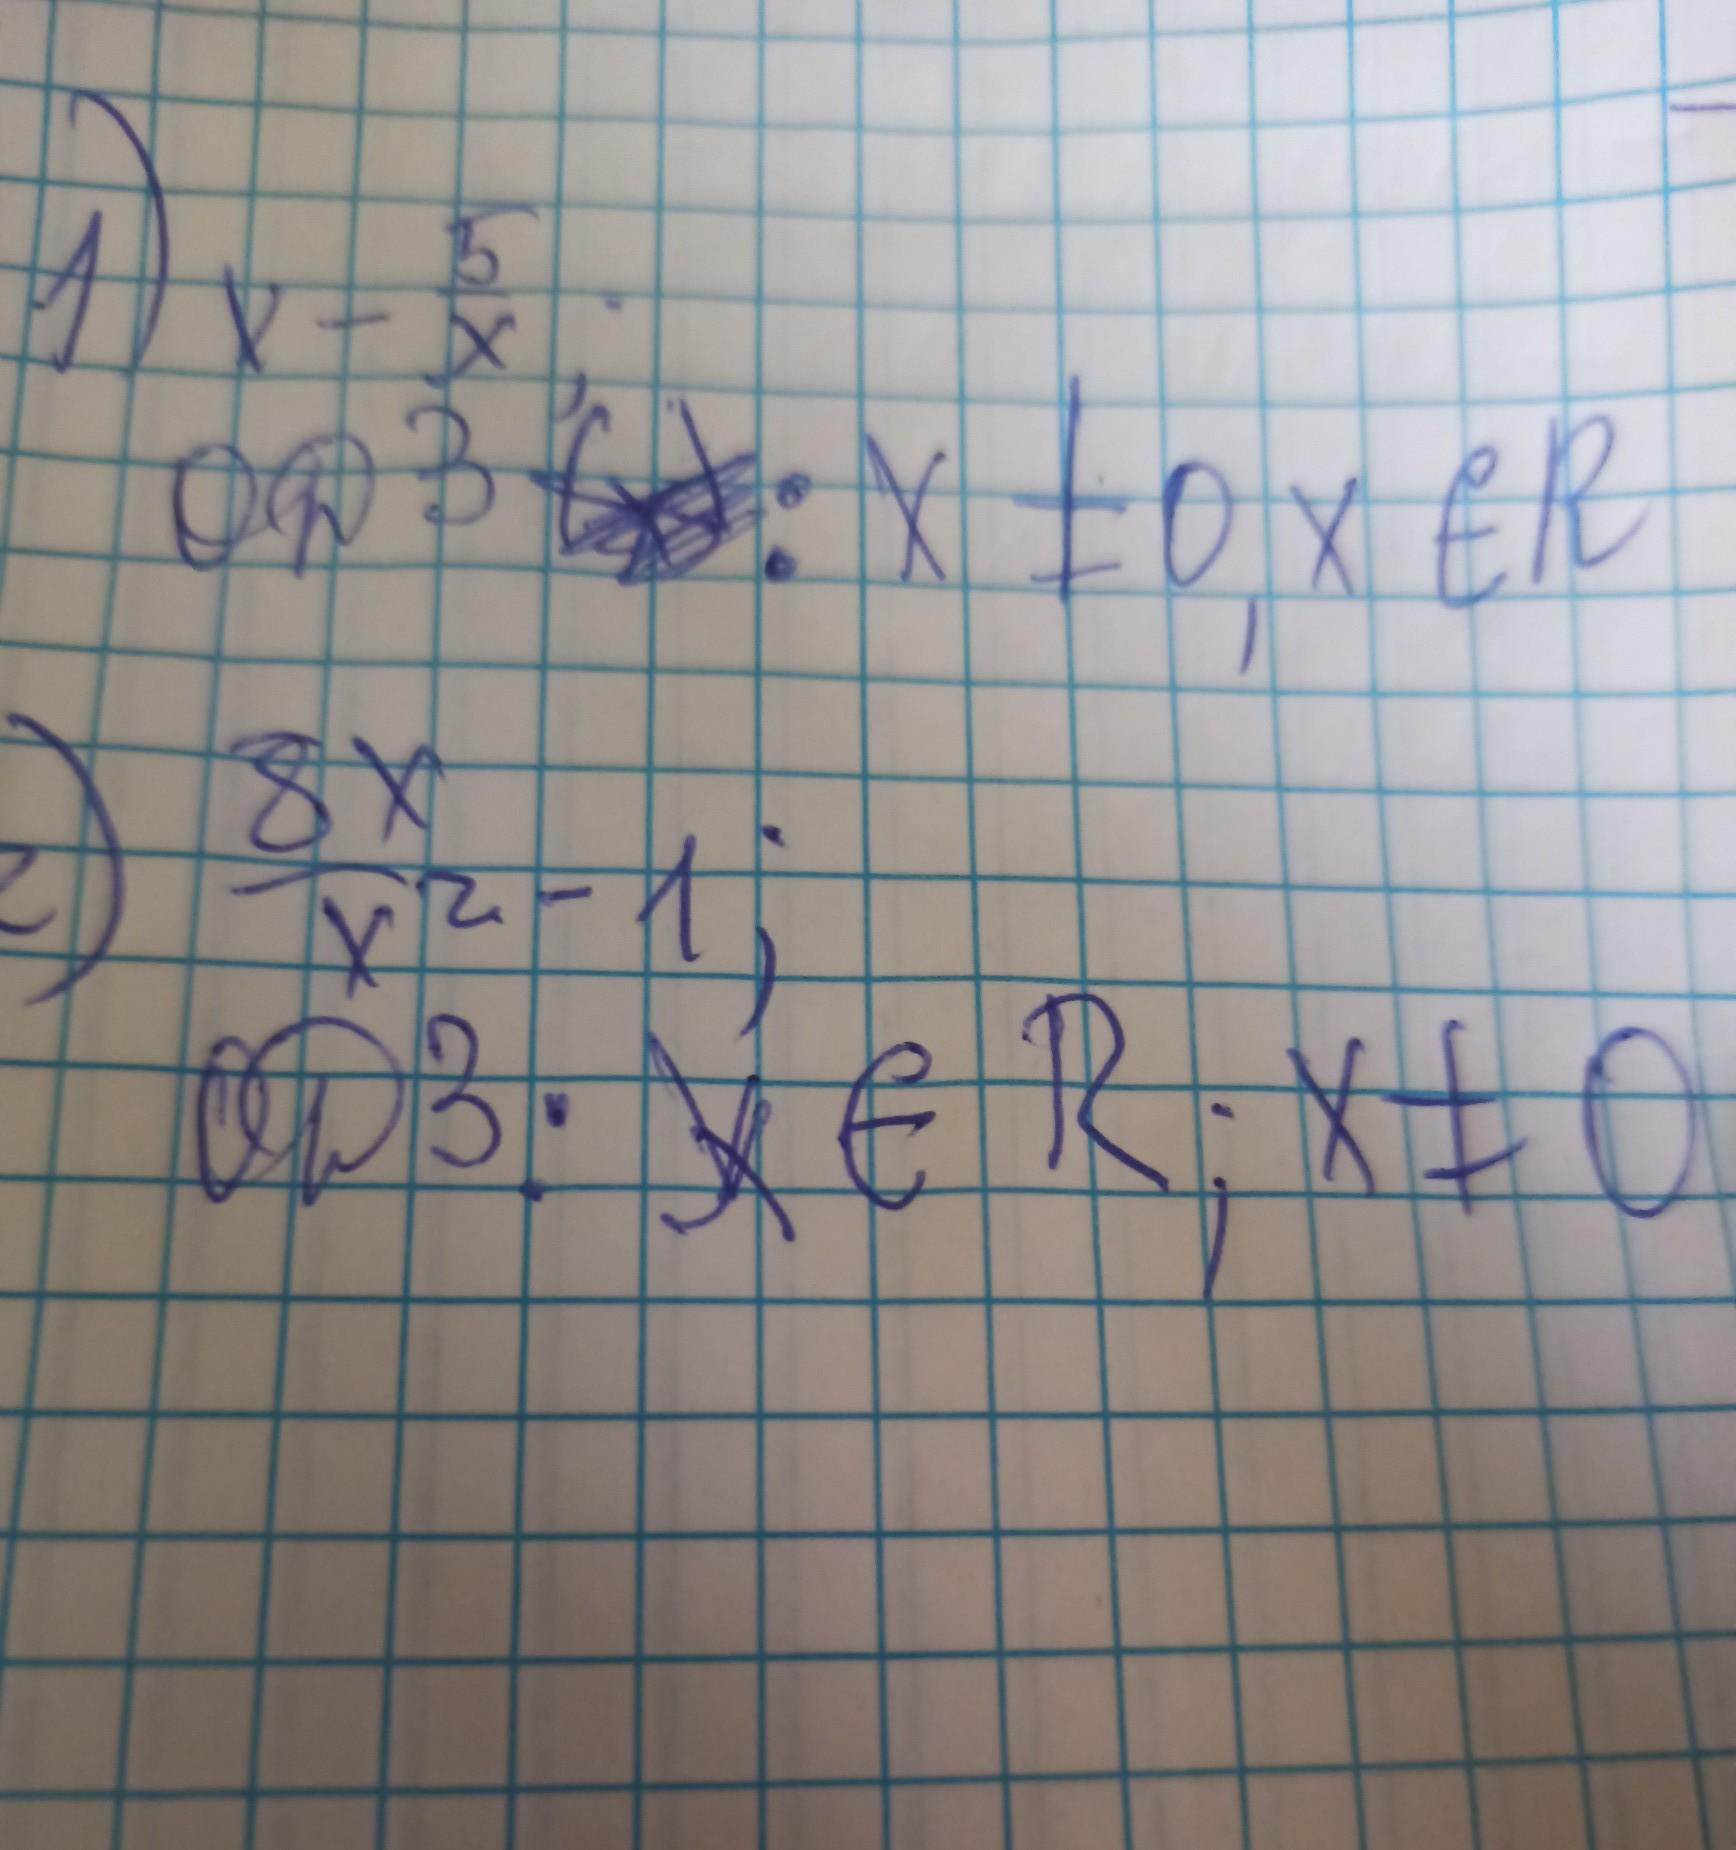 1) x - 5/x
ОДЗ : x ≠ 0, x ∈ R
2) 8x/x² - 1;
ОДЗ: x ∈ R; x ≠ 0